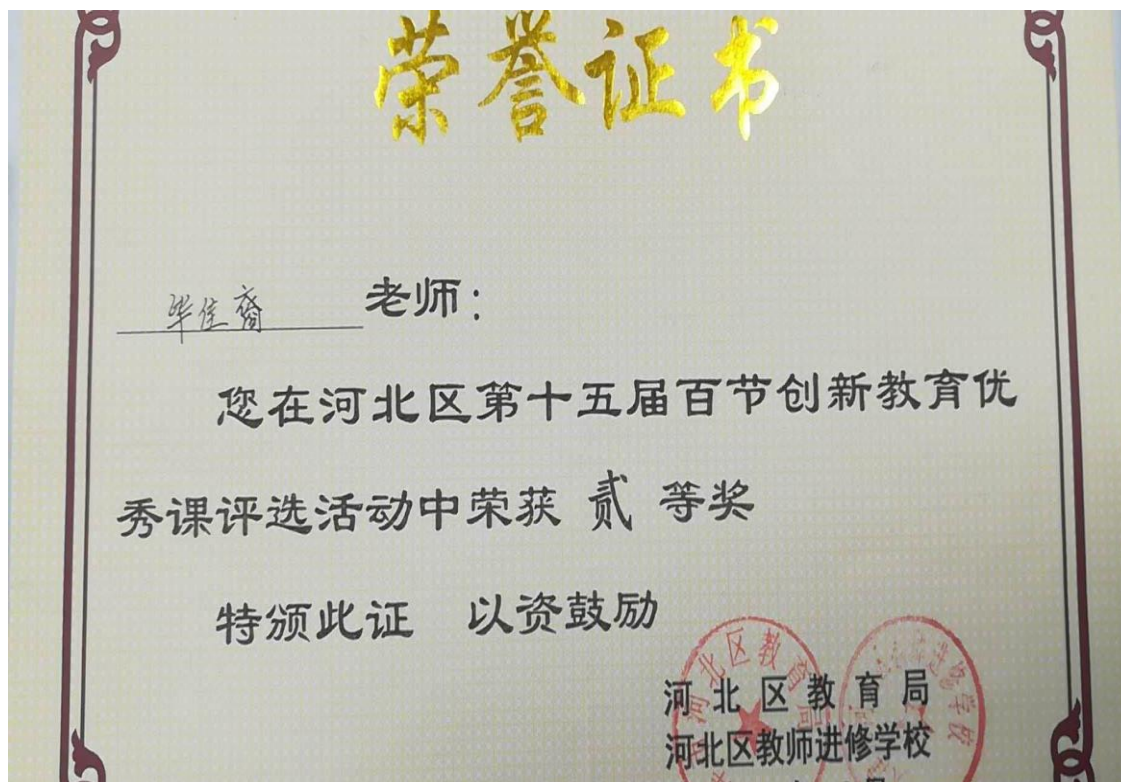 荣誉证书
毕佳裔 老师：
您在河北区第十五届百节创新教育优
秀课评选活动中荣获 贰 等奖
特颁此证 以资鼓励
河北区教育局
河北区教师进修学校